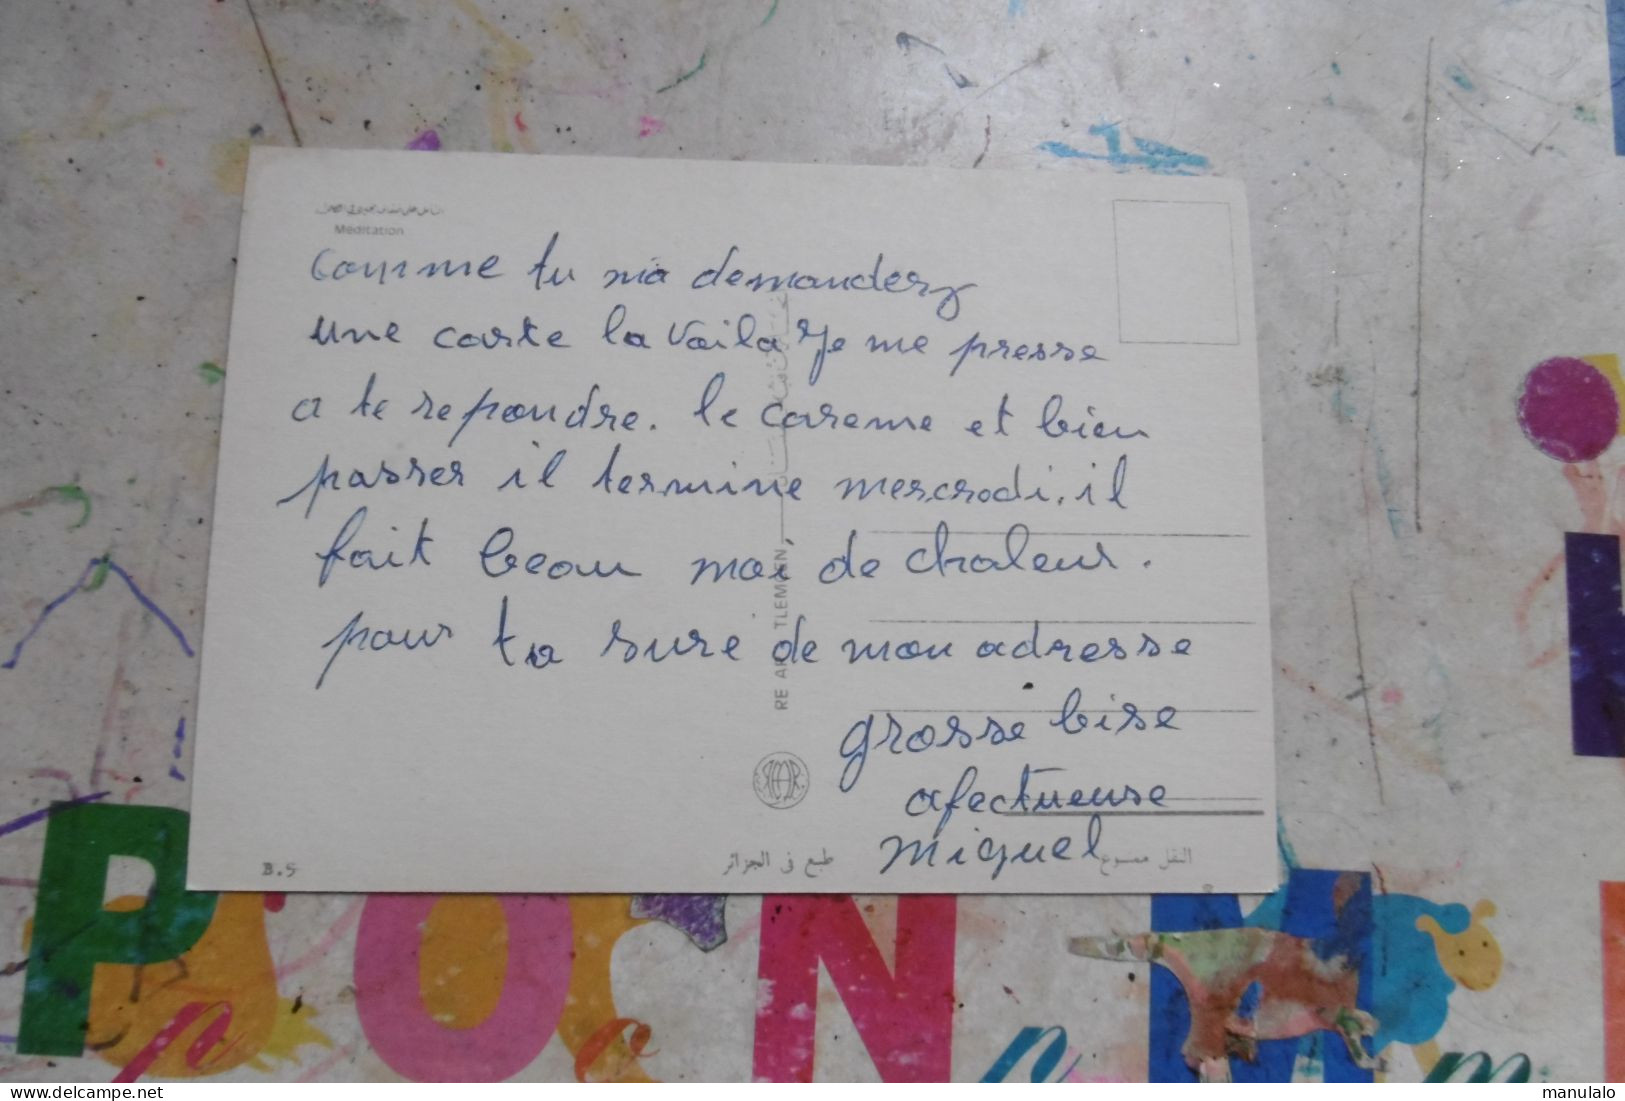 Meditation
Comme tu ma demanderz
une carte la voila Je me presse
a te repondre. le careme et bien
passer il termine mercrodi. il
fait beau moi de chaleur.
pour ta sure de mon adresse
grosse bise
afectueuse
miguel
TLEMCEN
RE AR
B.5
طبع في الجزائر
النقل ممنوع
P O N M
delcampe.net
manulalo